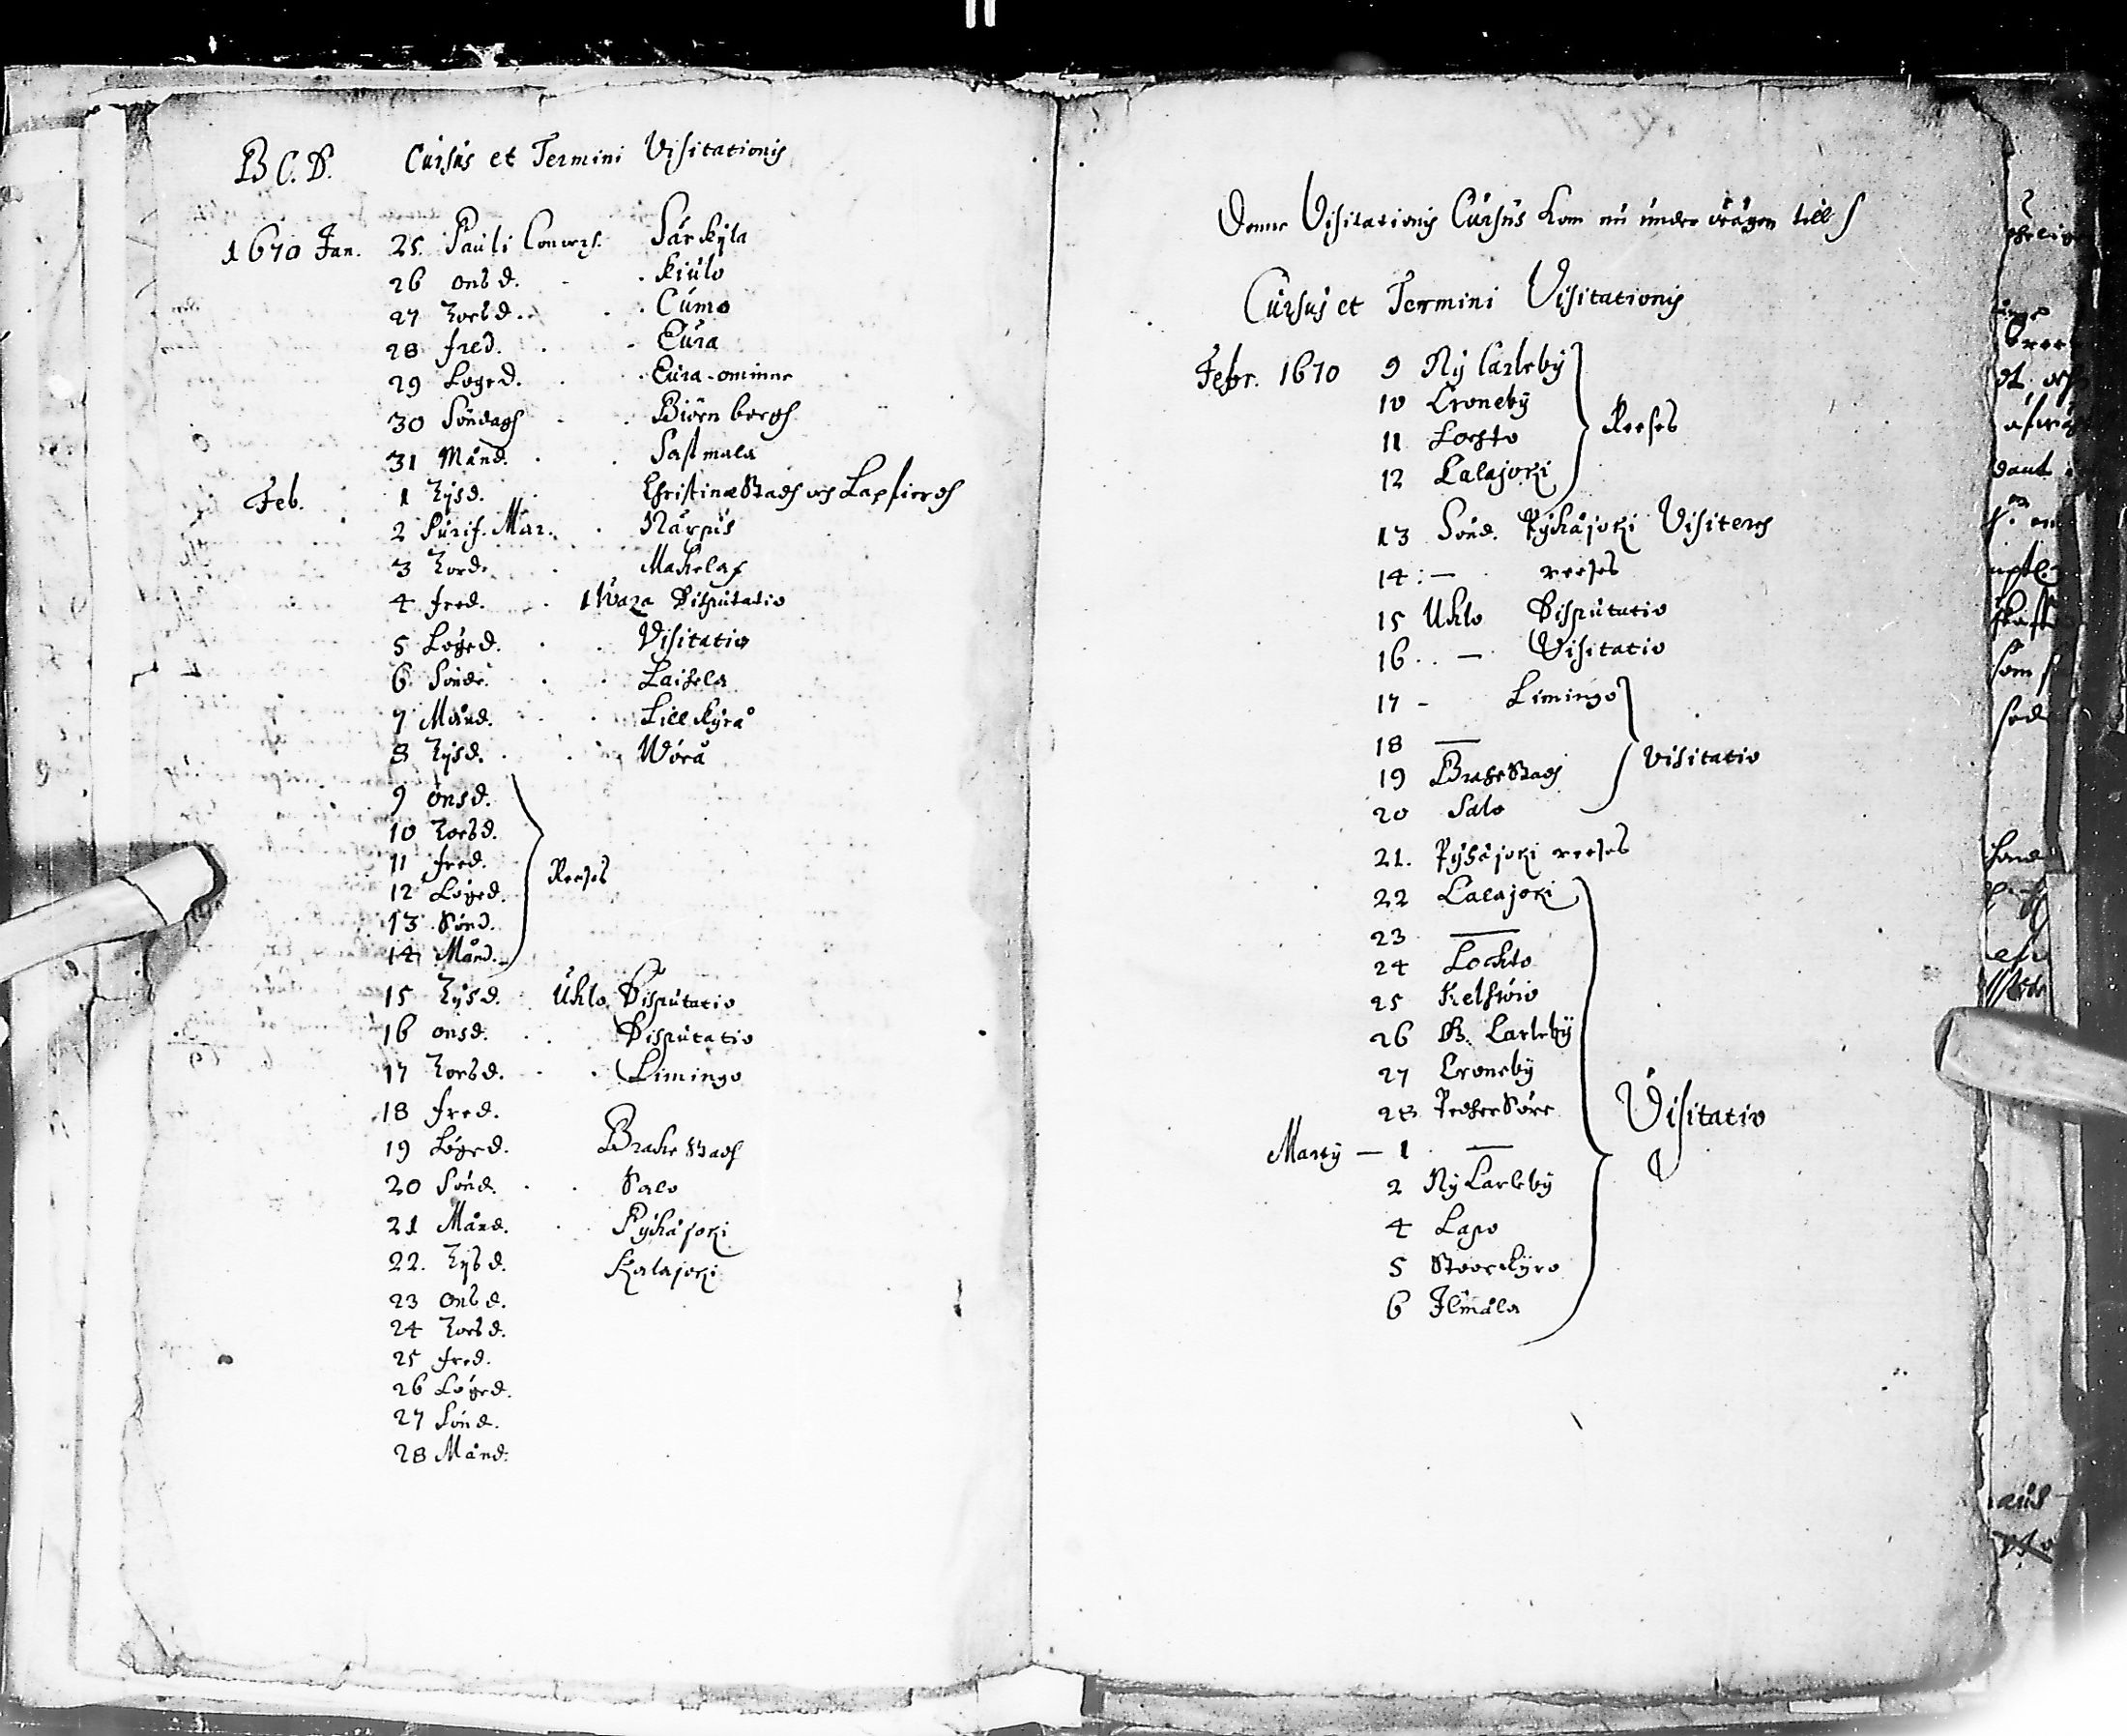 B C. D. Cursus et Termini Visitationis
1670 Jan. 25. Pauli Convers. Särkyla
26 Onsd. Kiulo
27 Torsd. Cumo
28 fred. Eura
29 Löged. Eura-ominne
30 Söndagh Biörneborgh
31 Månd. Sastmala
Feb. 1 Tysd. Christinæ Stadh och Lapfierdh
2 Purif. Mar. Närpis
3 Tord. Mahelax
4 fred. I Waza Disputatio
5 Löged. Visitatio
6 Sönd. Laihela
7 Månd. Lillkyrå
8 Tysd. Wörå
9 Onsd.
10 Torsd.
11 fred.
12 Löged. Reeses
13 Sönd.
14 Månd.
15 Tysd. Uhlo Disputatio
16 onsd. Disputatio
17 Torsd. Limingo
18 fred.
19 Löged. Brahe Stadh
20 Sönd. Salo
21 Månd. Pyhäjoki
22. Tysd. Kalajoki
23 Onsd.
24 Torsd.
25 fred.
26 Löged.
27 Sönd.
28 Månd.
Denne Visitationis Cursus kom nu under wägen till
Cursus et Termini Visitationis
Febr. 1670 9 Ny Carleby
10 Croneby
11 Lochto Reeses
12 Calajoki
13 Sönd. Pyhäjoki Visiteres
14 :— reeses
15 Uhlo Disputatio
16 .. — Visitatio
17 - Limingo
18 —
19 Brahe Stadh Visitatio
20 Salo
21. Pyhäjoki reeses
22 Calajoki
23 —
24 Lochto
25 Kelfwiö
26 G. Carleby
27 Croneby
28 Pedhersöre Visitatio
Martij — 1 —
2 Ny Carleby
4 Lapo
5 Stoorkyro
6 Ilmåla